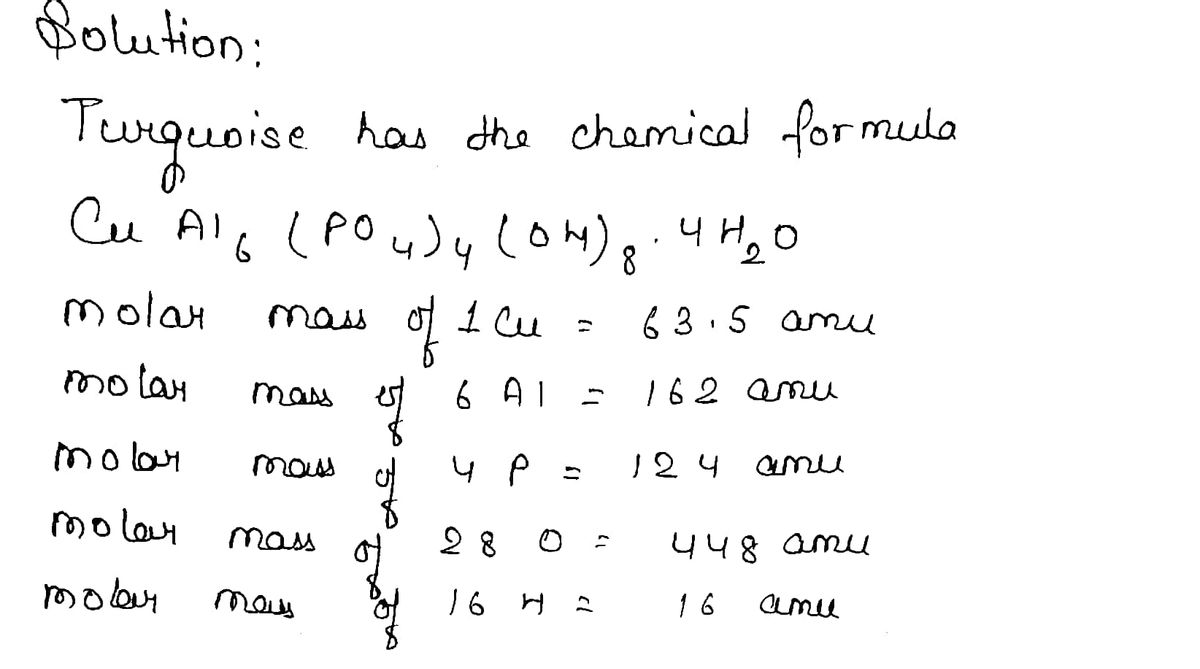 Solution:
Turquoise has the chemical formula
Cu Al₆ (PO₄)₄ (OH)₈ · 4H₂O
molar mass of 1 Cu = 63.5 amu
molar mass of 6 Al = 162 amu
molar mass of 4 P = 124 amu
molar mass of 28 O = 448 amu
molar mass of 16 H = 16 amu